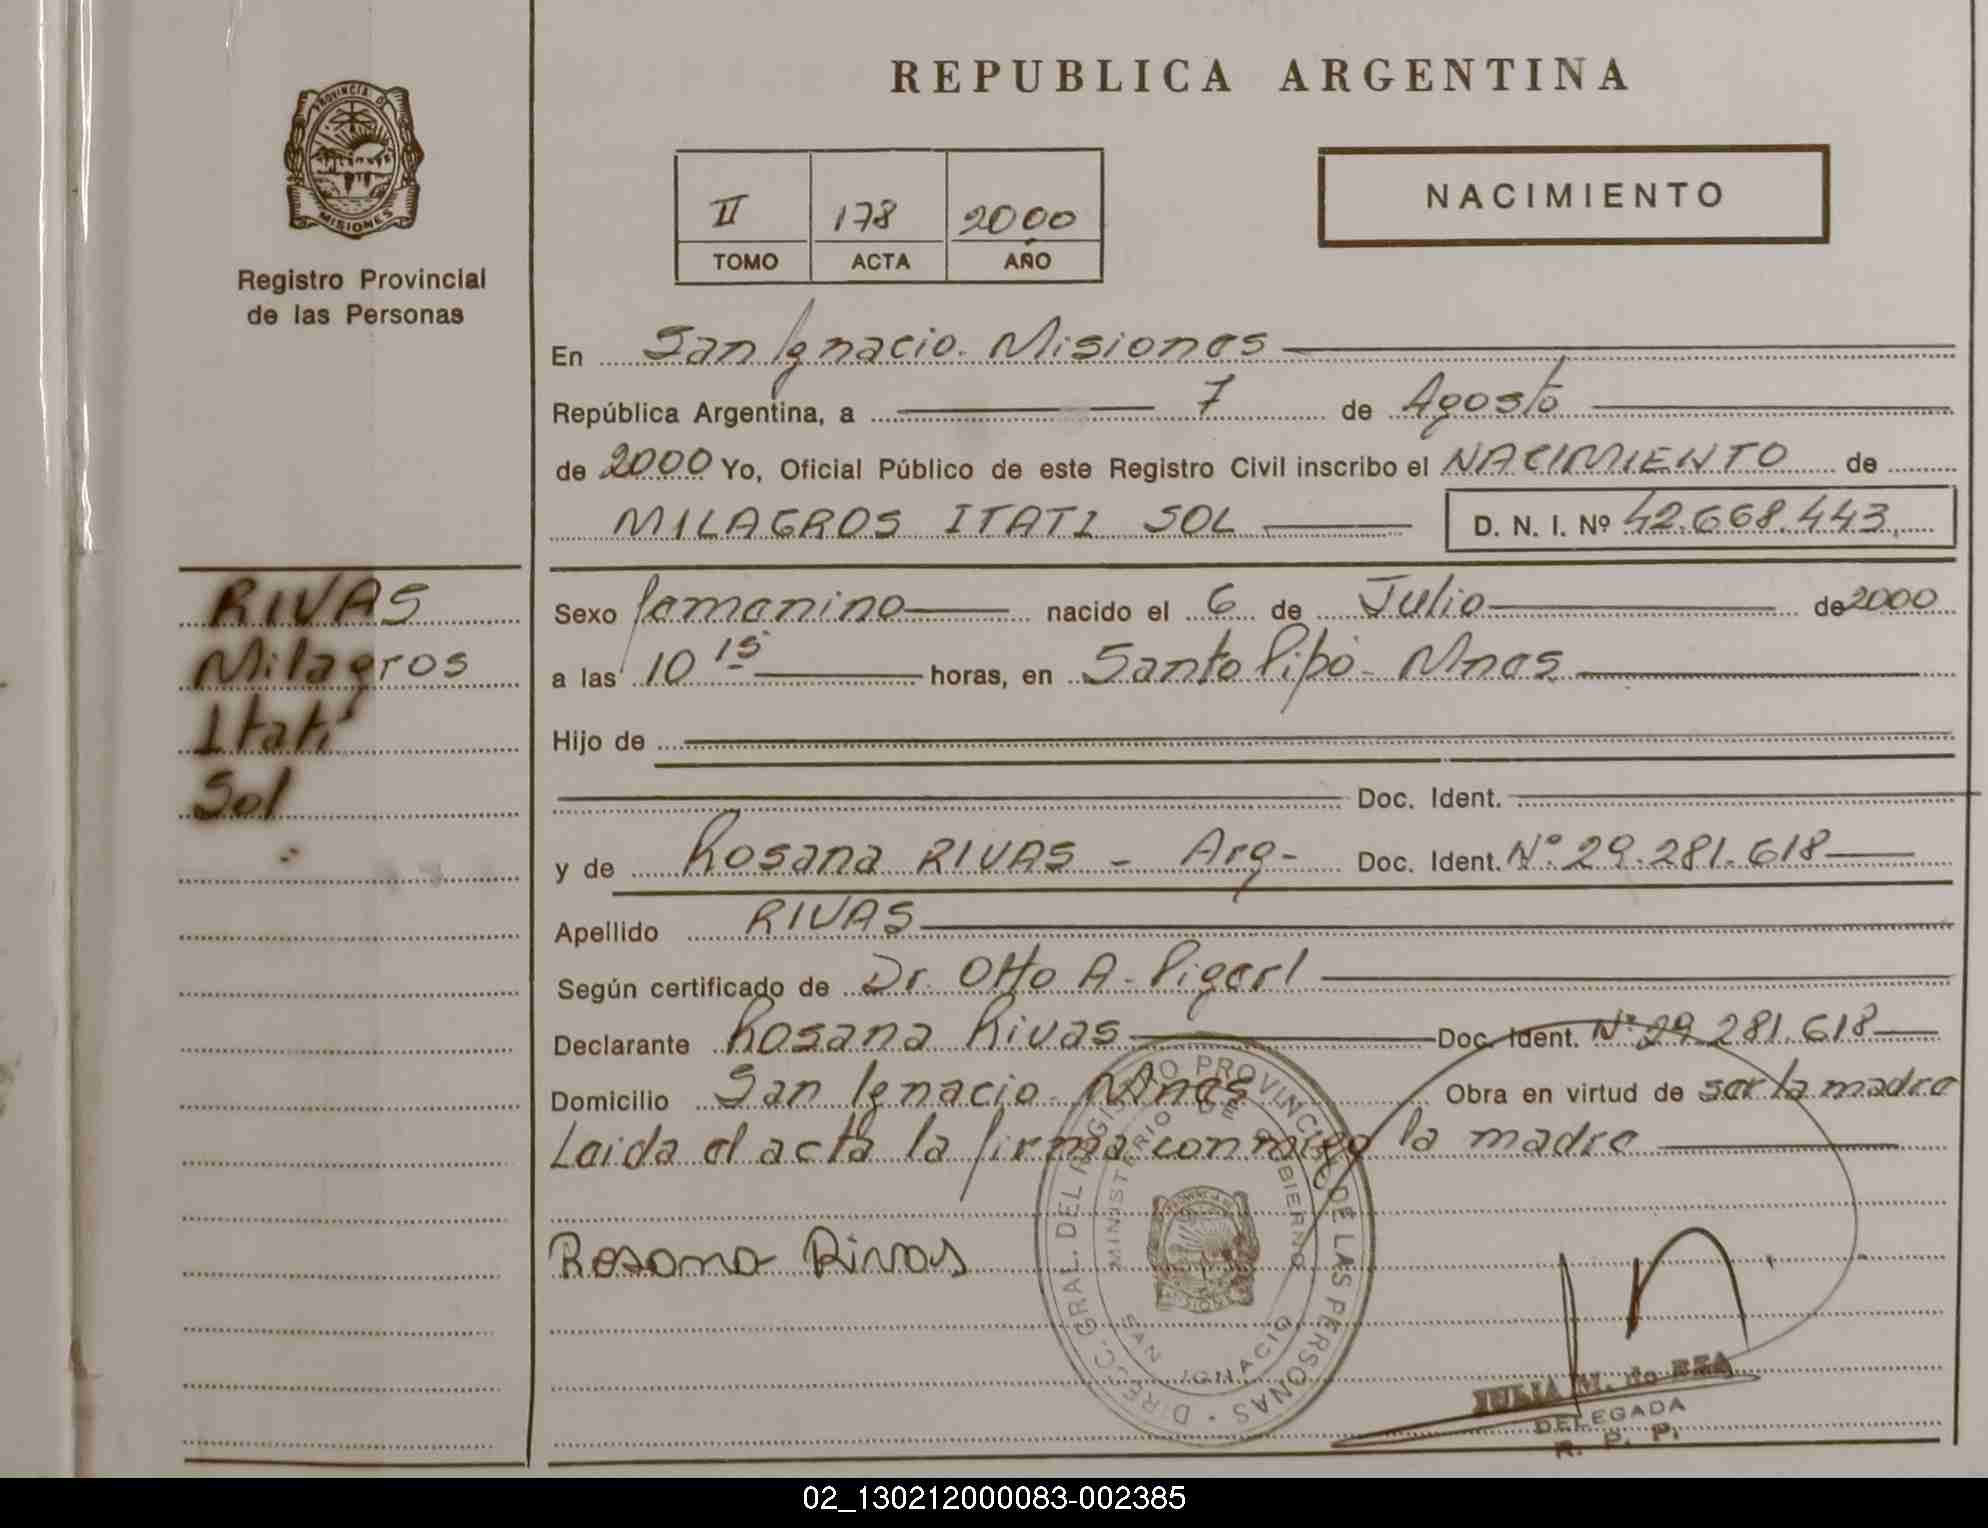 REPUBLICA ARGENTINA
PROVINCIA DE
MISIONES
Registro Provincial
de las Personas
II 178 2000
TOMO ACTA AÑO
NACIMIENTO
En San Ignacio. Misiones
República Argentina, a 7 de Agosto
de 2000 Yo, Oficial Público de este Registro Civil inscribo el NACIMIENTO de
MILAGROS ITATI SOL D. N. I. Nº 42.668.443
RIVAS
Milagros
Itatí
Sol
Sexo femenino nacido el 6 de Julio de 2000
a las 10 15 horas, en Santo Pipó - Mnes
Hijo de
Doc. Ident.
y de Rosana RIVAS - Arg- Doc. Ident. Nº 29.281.618
Apellido RIVAS
Según certificado de Dr. Otto A. Pigerl
Declarante Rosana Rivas Doc. Ident. Nº 29.281.618
Domicilio San Ignacio. Mnes Obra en virtud de ser la madre
Leida el acta la firma conmigo la madre
Rosana Rivas
DIRECC. GRAL. DEL REGISTRO PROVINCIAL DE LAS PERSONAS
MINISTERIO DE GOBIERNO
SAN IGNACIO
JULIA M. de EZA
DELEGADA
R. P. P.
02_130212000083-002385